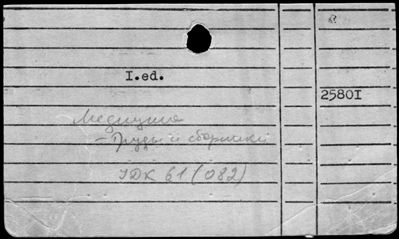 I.ed.
2580I
Медицина
- Труды и сборники
УДК 61 (082)